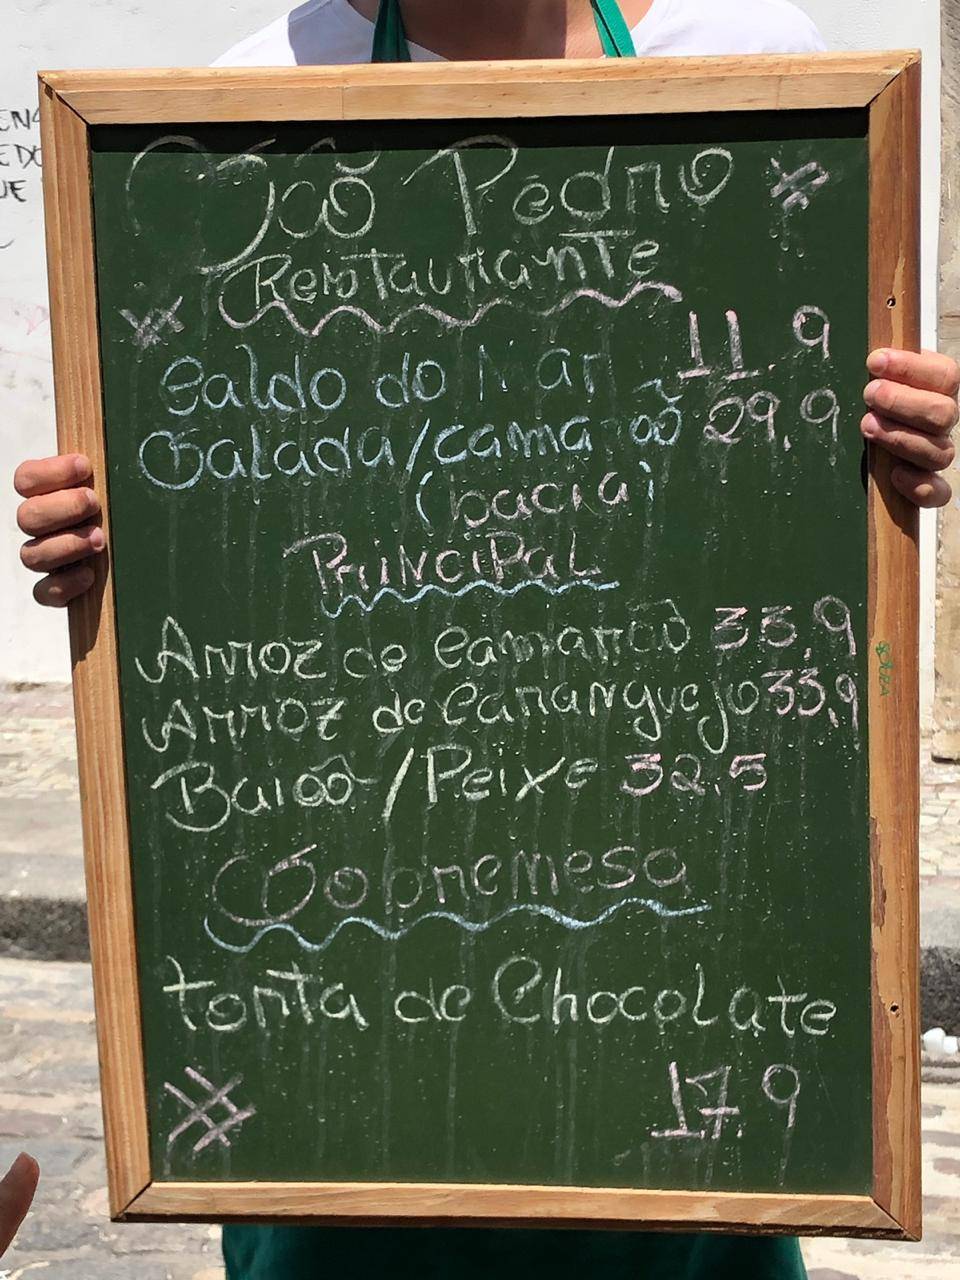 São Pedro
Restaurante
Caldo do Mar 11.9
Salada/camarão 29.9
(bacia)
PRINCIPAL
Arroz de Camarão 33,9
Arroz de Caranguejo 33,9
Baião/Peixe 32.5
Sobremesa
torta de Chocolate
17.9